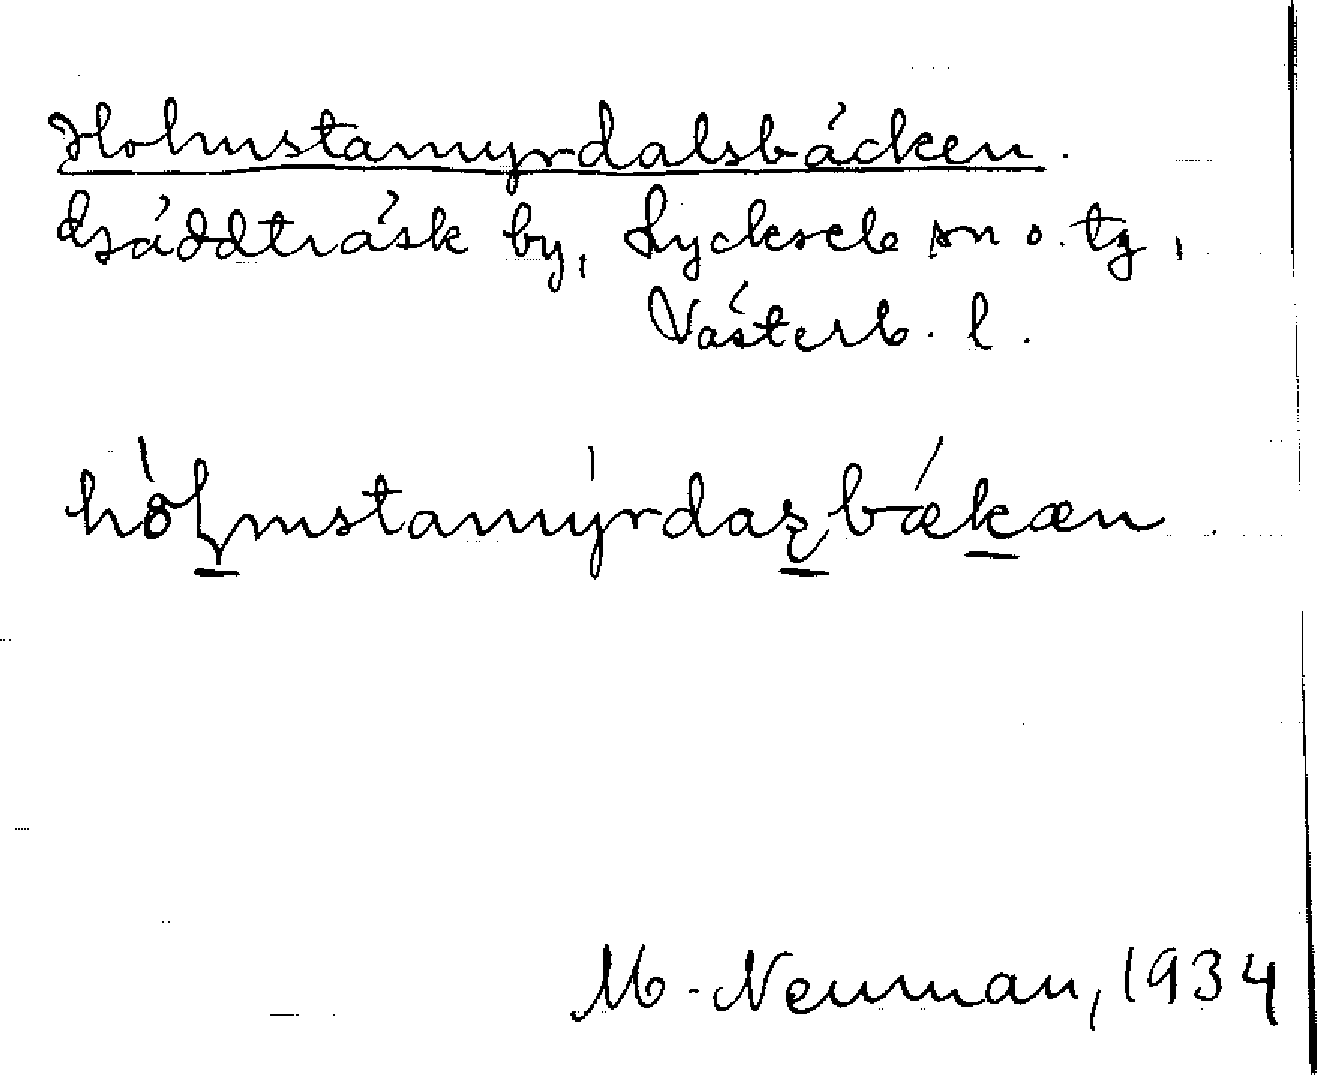 Holmstamyrdalsbäcken.
Bräddträsk by, Lycksele sn o. tg,
Västerb. l.
hòl̥mstamýrdaʂbǽkæn.
M. Neuman, 1934